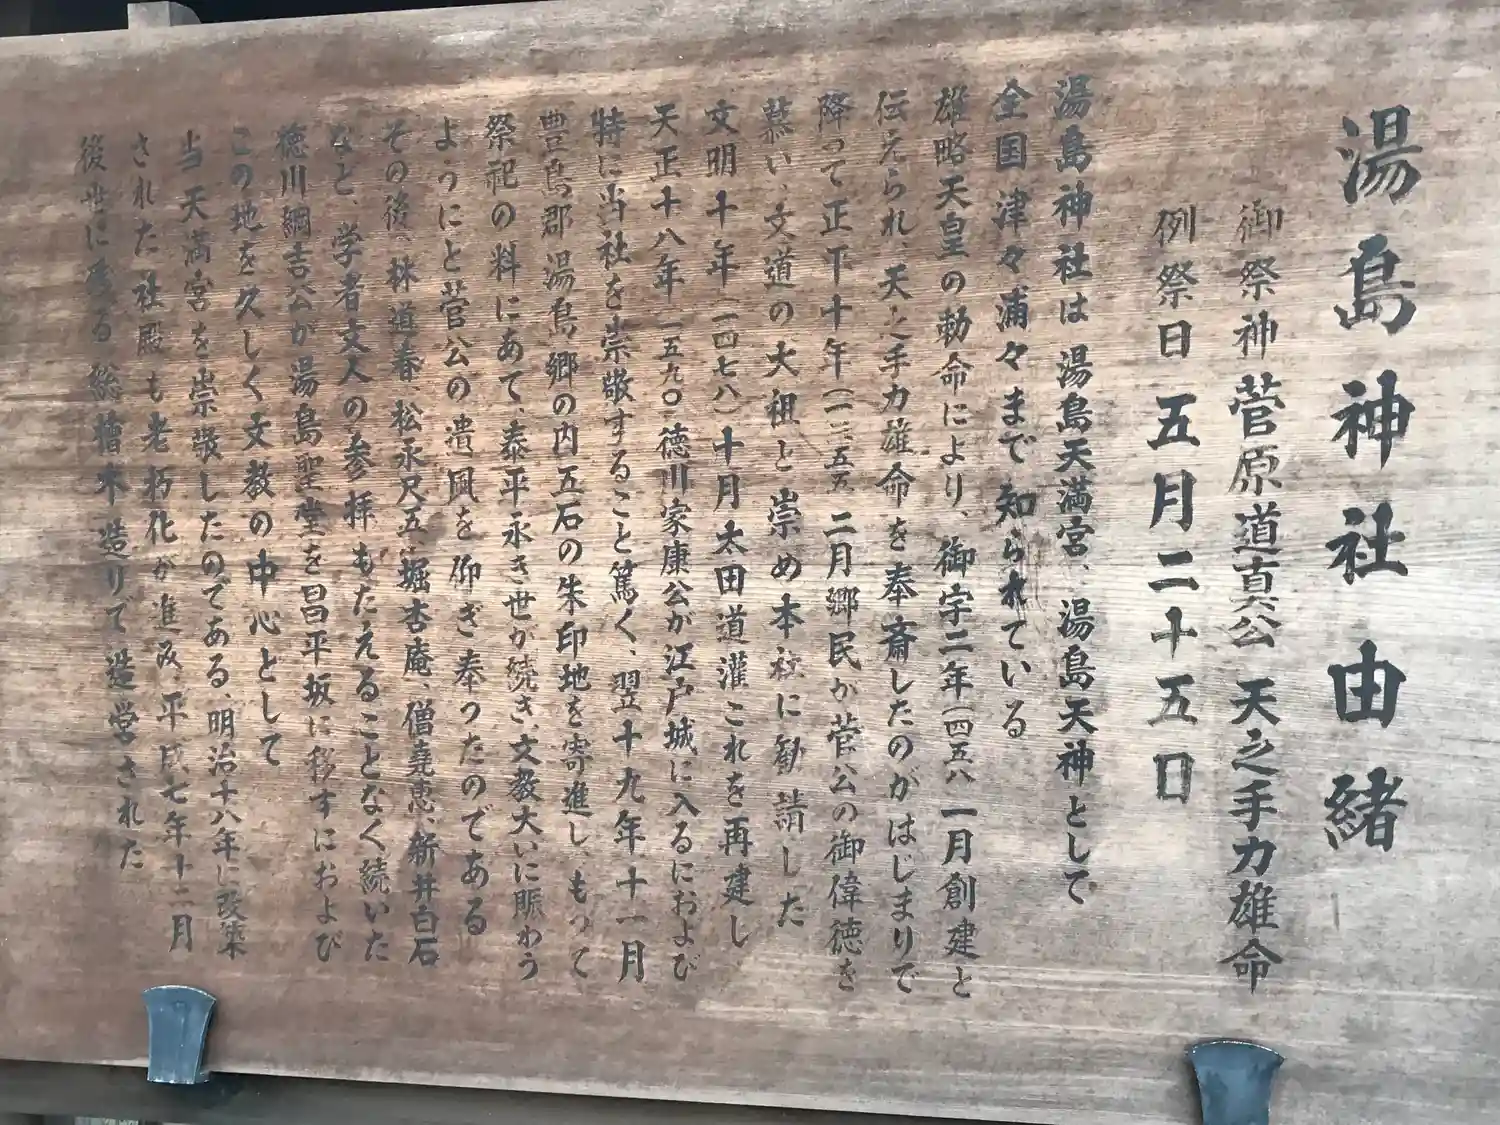 湯島神社由緒
御祭神 菅原道真公 天之手力雄命
例祭日 五月二十五日
湯島神社は 湯島天満宮、湯島天神として
全国津々浦々まで知られている
雄略天皇の勅命により、御宇二年(四五八 一月創建と
伝えられ、天之手力雄命を奉斎したのがはじまりで
降って正平十年(一三五五 二月郷民が菅公の御偉徳を
慕い、文道の大祖と崇め本社に勧請した
文明十年(一四七八)十月太田道灌これを再建し
天正十八年 一五九〇 徳川家康公が江戸城に入るにおよび
特に当社を崇敬すること篤く、翌十九年十一月
豊島郡湯島郷の内五石の朱印地を寄進し、もって
祭祀の料にあて、泰平永き世が続き、文教大いに賑わう
ようにと菅公の遺風を仰ぎ奉ったのである
その後、林道春 松永尺五、堀杏庵、僧堯恵、新井白石
など、学者文人の参拝もたえることなく続いた
徳川綱吉公が湯島聖堂を昌平坂に移すにおよび
この地を久しく文教の中心として
当天満宮を崇敬したのである、明治十八年に改築
された社殿も老朽化が進み、平成七年十二月
後世に残る総檜木造りで造営された